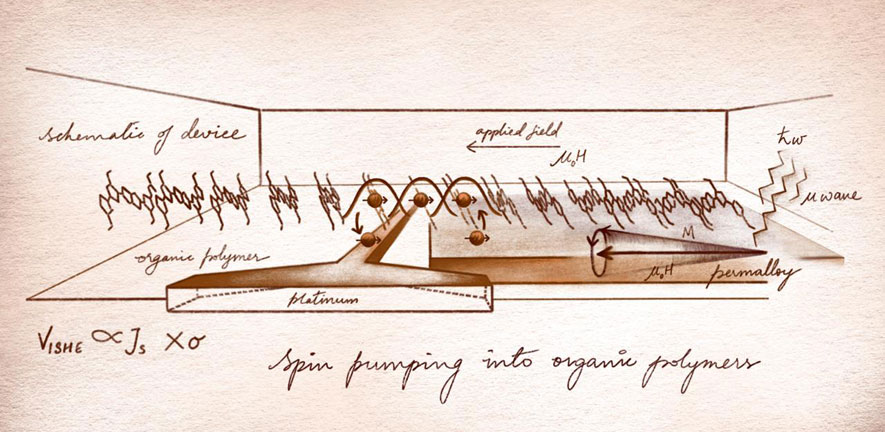 schematic of device
applied field
μ₀H
ħω
μwave
organic polymer
M
μ₀H
permalloy
platinum
V_ISHE ∝ J_S × σ
spin pumping into organic polymers